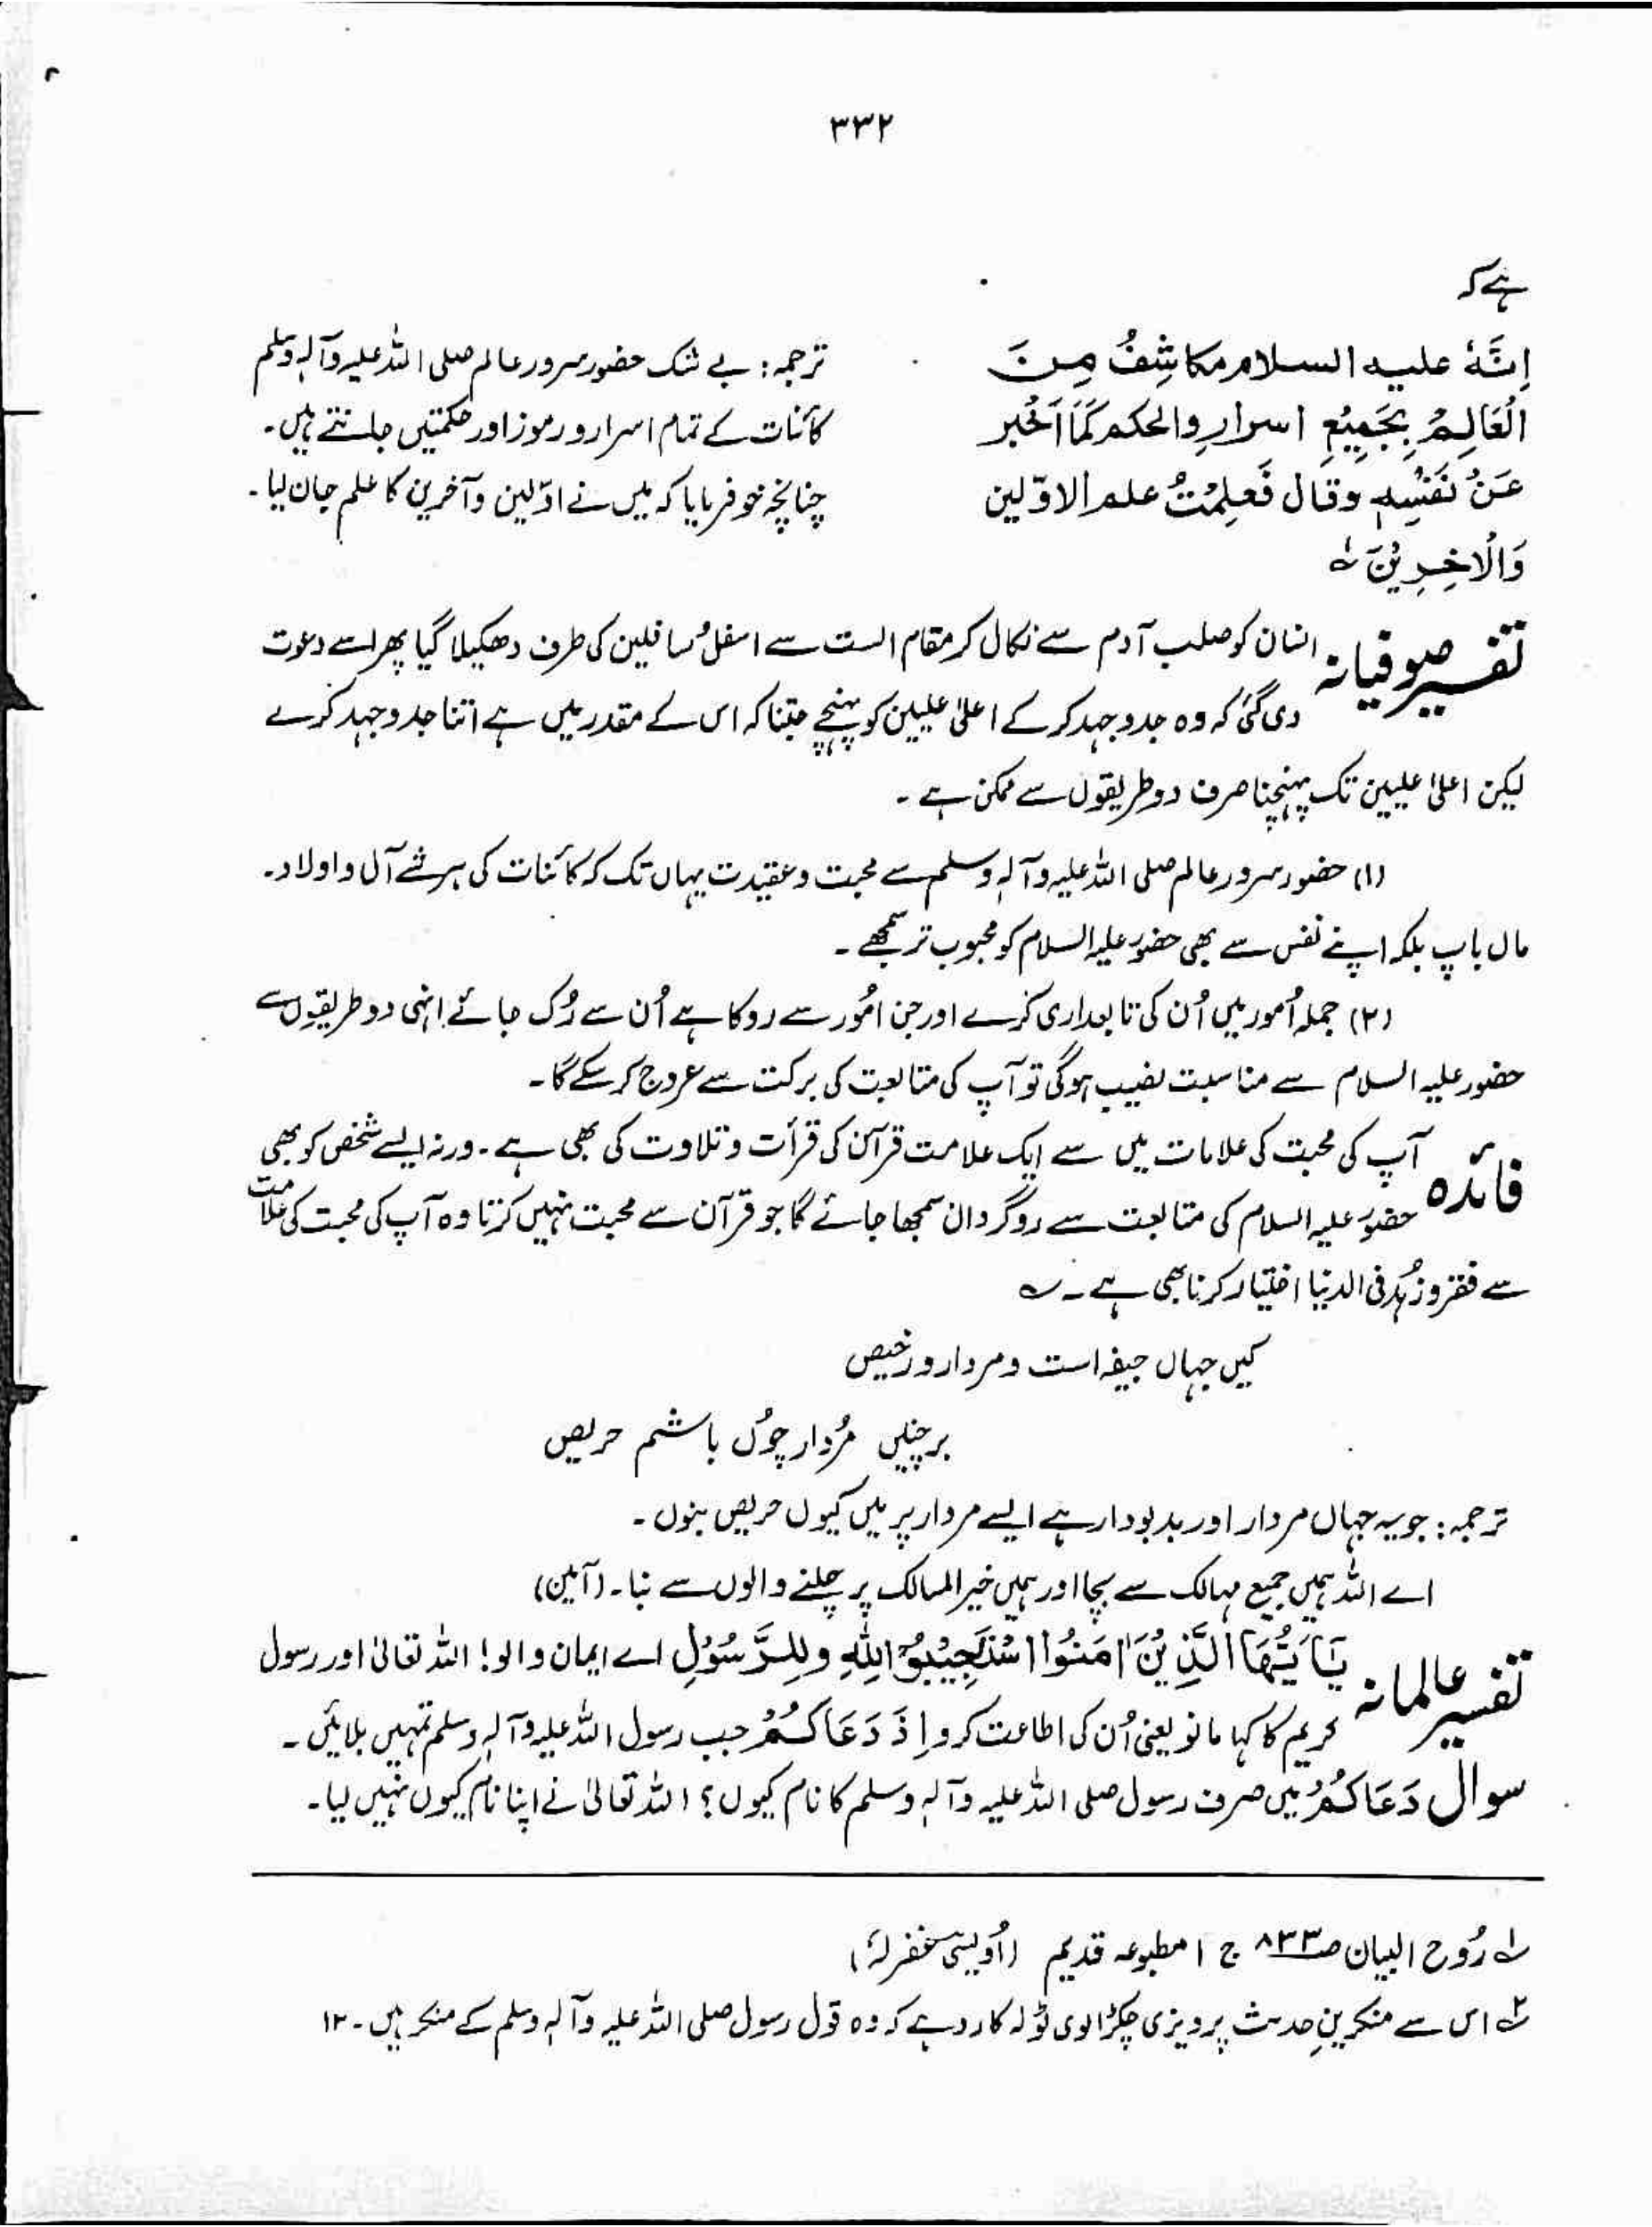 ۳۳۲
ہے کہ
اِنَّهٗ علیہ السلام مکاشِفُ مِنَ
الْعَالِمُ بِجَمِیْعِ اسرارِ والحکم کَمَا اَخْبر
عَنْ نَفْسِهٖ وقال فَعَلِمْتُ علم الاوّلین
وَالْاٰخِرِیْنَ ؎۱
ترجمہ: بے شک حضور سرور عالم صلی اللہ علیہ وآلہٖ وسلم
کائنات کے تمام اسرار و رموز اور حکمتیں جانتے ہیں۔
چنانچہ خو فرمایا کہ میں نے اوّلین وآخرین کا علم جان لیا۔
تفسیر صوفیانہ انسان کو صلب آدم سے نکال کر مقام الست سے اسفل سافلین کی طرف دھکیلا گیا پھر اسے دعوت
دی گئی کہ وہ جدوجہد کرکے اعلیٰ علیین کو پہنچے جتنا کہ اس کے مقدر میں ہے اتنا جدوجہد کرے
لیکن اعلیٰ علیین تک پہنچنا صرف دو طریقوں سے ممکن ہے۔
(۱) حضور سرور عالم صلی اللہ علیہ وآلہٖ وسلم سے محبت و عقیدت یہاں تک کہ کائنات کی ہر شے آل و اولاد۔
ماں باپ بلکہ اپنے نفس سے بھی حضور علیہ السلام کو محبوب تر سمجھے۔
(۲) جملہ اُمور میں اُن کی تابعداری کرے اور جن امُور سے روکا ہے اُن سے رُک جائے انہی دو طریقوں سے
حضور علیہ السلام سے مناسبت نصیب ہوگی تو آپ کی متابعت کی برکت سے عروج کرسکے گا۔
فائدہ آپ کی محبت کی علامات میں سے ایک علامت قرآن کی قرأت و تلاوت کی بھی ہے۔ ورنہ ایسے شخص کو بھی
حضور علیہ السلام کی متابعت سے روگردان سمجھا جائے گا جو قرآن سے محبت نہیں کرتا وہ آپ کی محبت کی علامت
سے فقر و زُہد فی الدنیا اختیار کرنا بھی ہے۔ ؎
کیں جہاں جیفہ است و مردار و رخیص
بر چنیں مُردار چوُں باشم حریص
ترجمہ: جو یہ جہاں مردار اور بدبودار ہے ایسے مردار پر میں کیوں حریص بنوں۔
اے اللہ ہمیں جمیع مہالک سے بچا اور ہمیں خیر المسالک پر چلنے والوں سے بنا۔ (آمین)
تفسیر عالمانہ یٰٓاَیُّهَا الَّذِیْنَ اٰمَنُوا اسْتَجِیْبُوْا لِلّٰهِ وَلِلرَّسُوْلِ اے ایمان والو! اللہ تعالیٰ اور رسول
کریم کا کہا مانو یعنی اُن کی اطاعت کرو اِذَ دَعَاکُمْ جب رسول اللہ علیہ وآلہٖ وسلم تمہیں بلائیں۔
سوال دَعَاکُمْ میں صرف رسول صلی اللہ علیہ وآلہٖ وسلم کا نام کیوں؟ اللہ تعالیٰ نے اپنا نام کیوں نہیں لیا۔
؎۱ رُوح البیان صـ۸۳۳ ج ۱ مطبوعہ قدیم (اُویسی غفرلہٗ)
؎۲ اس سے منکرینِ حدیث پرویزی چکڑالوی ٹولہ کا رد ہے کہ وہ قول رسول صلی اللہ علیہ وآلہٖ وسلم کے منکر ہیں۔ ۱۲